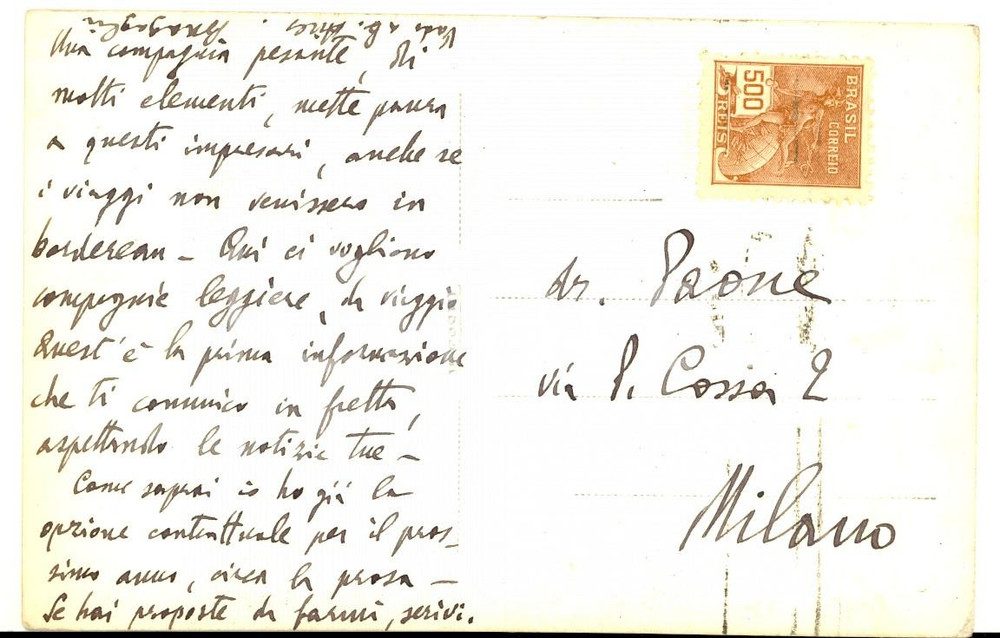 Una compagnia pesante, di
molti elementi, mette paura
a questi impresari, anche se
i viaggi non venissero in
bordereau – Qui ci vogliono
compagnie leggiere, da viaggio
Quest'è la prima informazione
che ti comunico in fretta,
aspettando le notizie tue –
Come saprai io ho già la
opzione contrattuale per il pros-
simo anno, circa la prosa –
Se hai proposte da farmi, scrivi.
BRASIL
CORREIO
500
REIS
dr. Paone
via P. Cossa 2
Milano